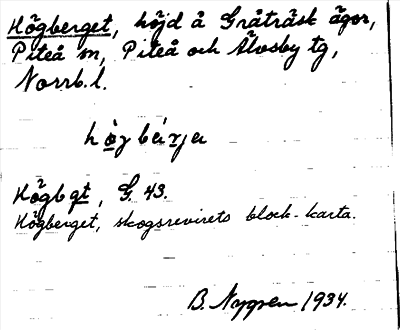 Högberget, höjd å Gråträsk ägor,
Piteå sn, Piteå och Älvsby tg,
Norrb. l.
Högbgt, G. 43.
Högberget, skogsrevirets block-karta.
B. Nygren 1934.